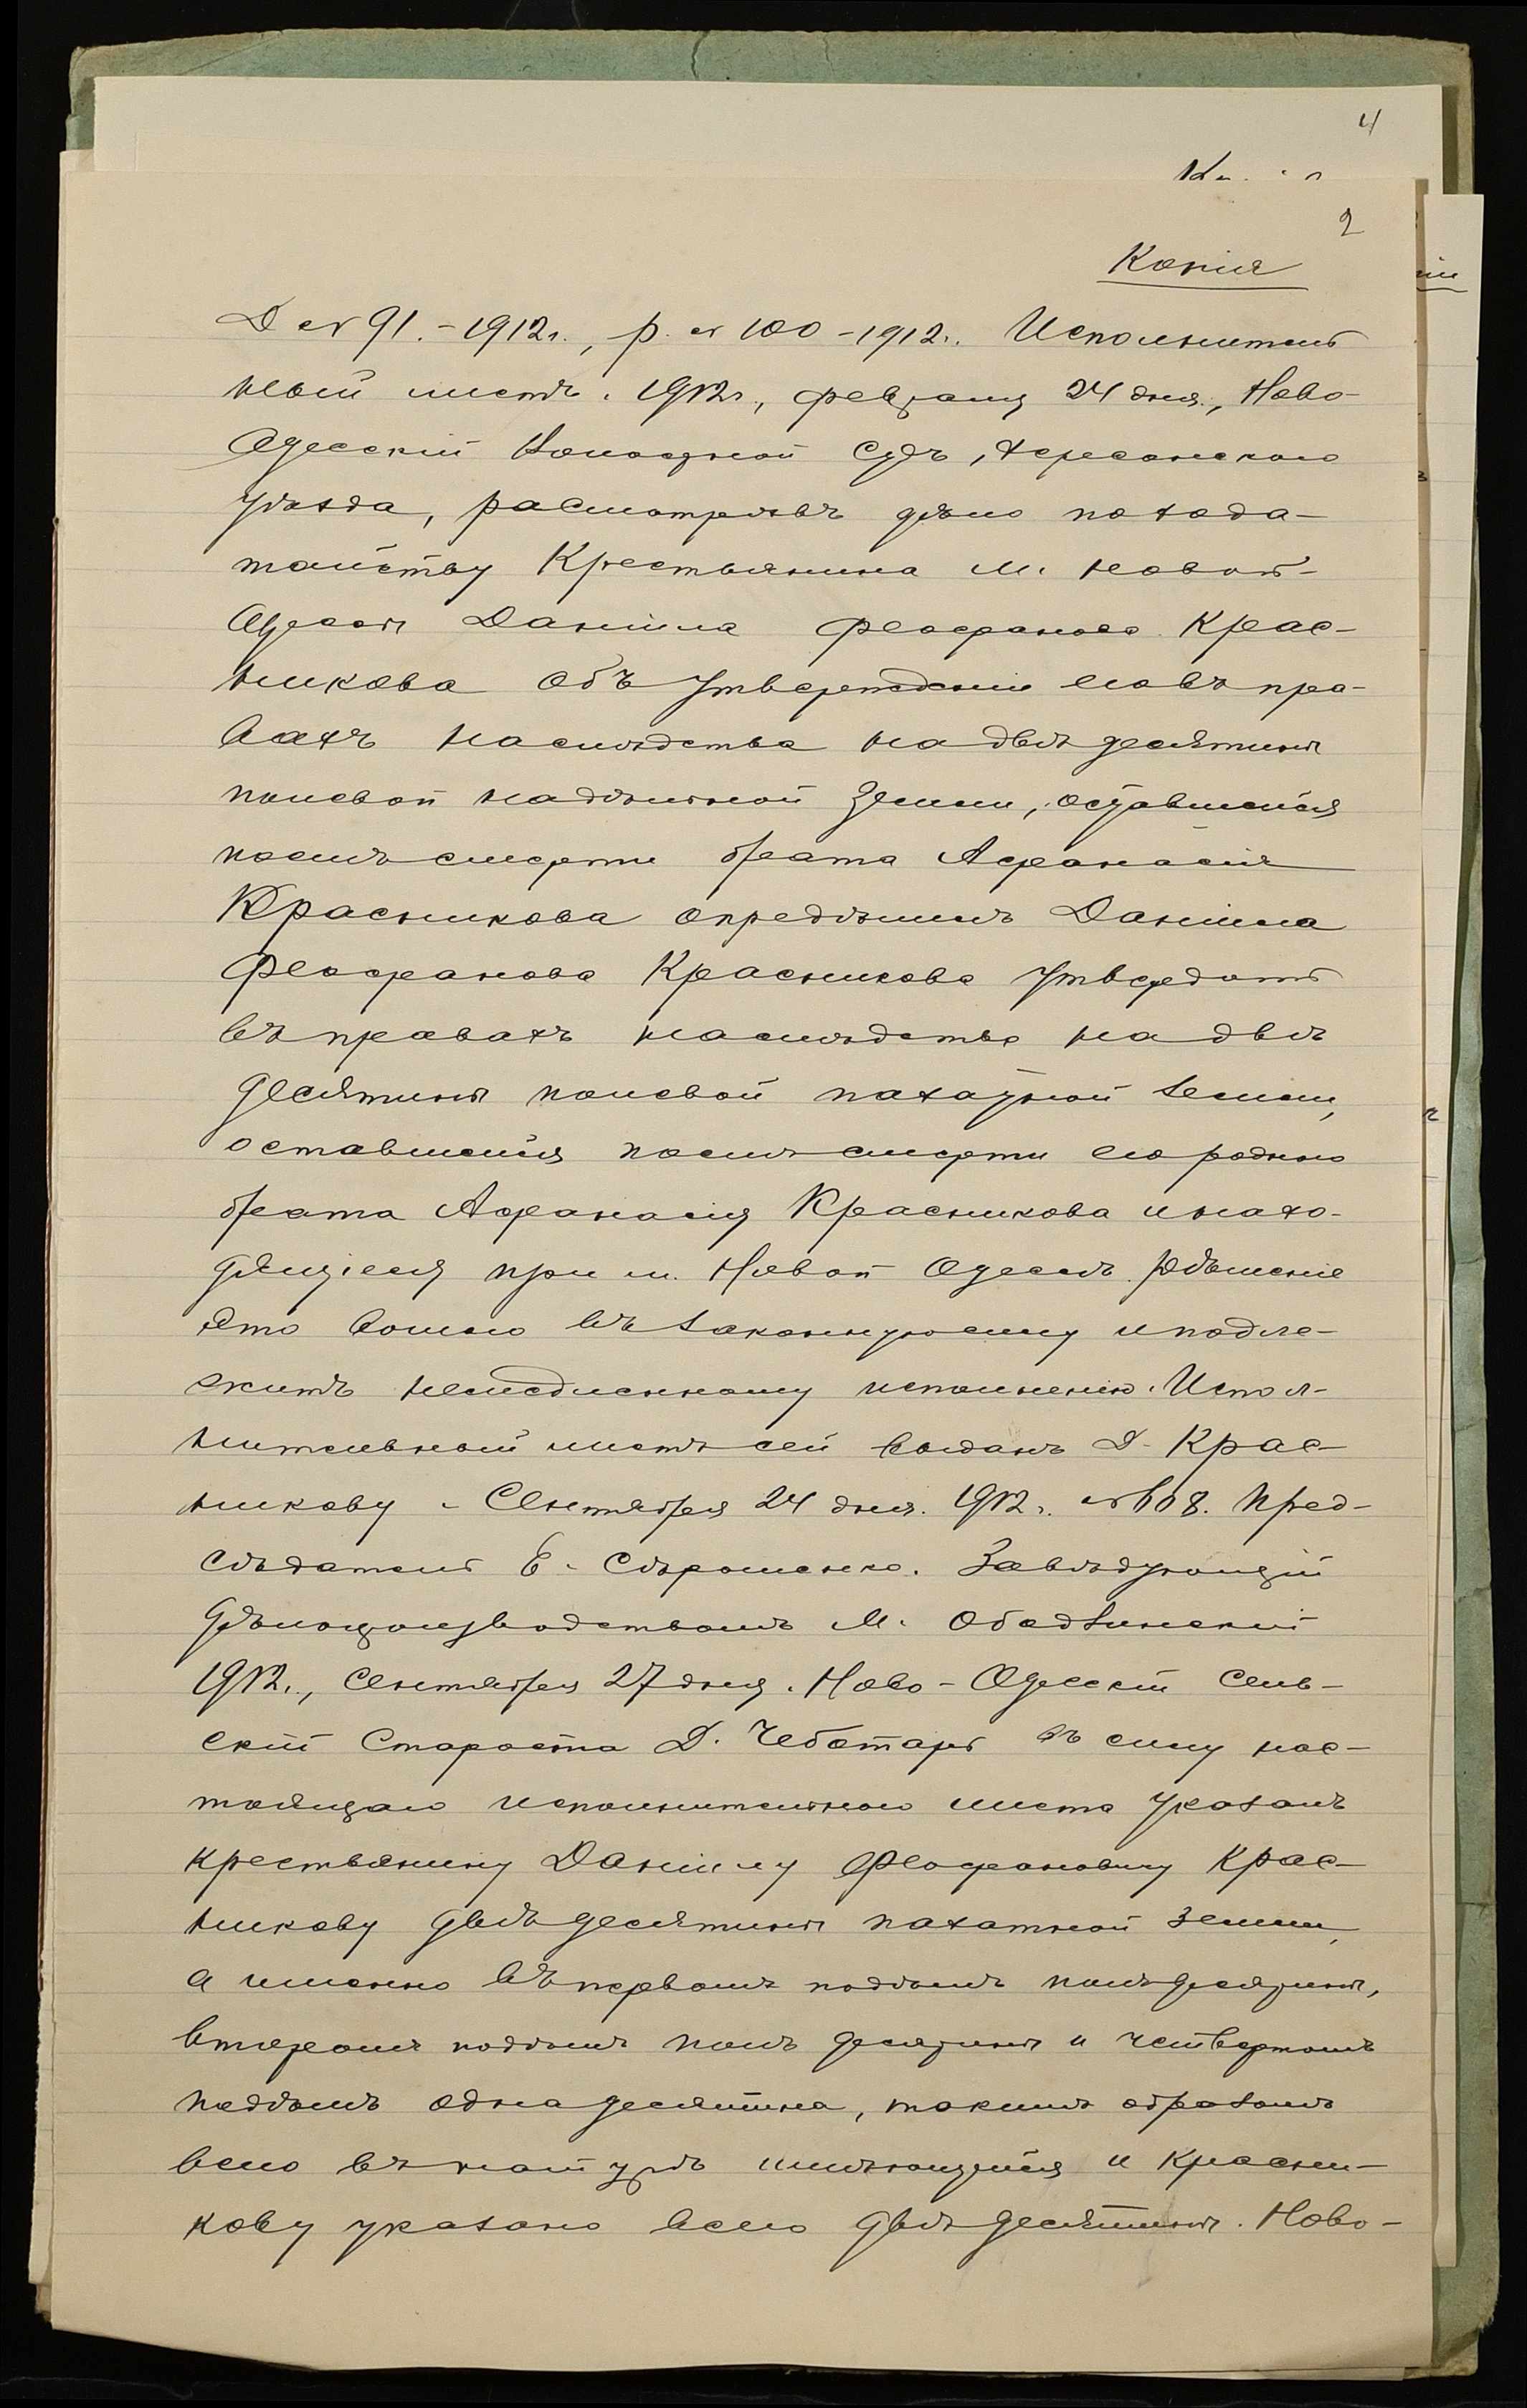 4
2
Копія
Д № 91.-1912г., р. № 100-1912г. Исполнитель
ный листъ. 1912г., февраля 24 дня, Ново-
Одесскій Волостной Судъ, Херсонскаго
уѣзда, расмотрѣвъ дѣло по хода-
тайству Крестьянина м. Новой-
Одессы Даніила Феофанова Крас-
никова объ утвержденіи его въ пра-
вахъ наслѣдства на двѣ десятины
полевой надѣльной земли, оставшейся
послѣ смерти брата Афанасія
Красникова опредѣлилъ Даніила
Феофанова Красникова утвердить
въ правахъ наслѣдства на двѣ
десятины полевой пахатной земли,
оставшейся послѣ смерти его родного
брата Афанасія Красникова и нахо-
дящіеся при м. Новой Одессѣ. Рѣшеніе
это вошло въ законную силу и подле-
житъ немедленному исполненію. Испол-
нительный листъ сей выданъ Д. Крас-
никову. Сентября 24 дня. 1912г. № 608. Пред-
сѣдатель Е. Сѣрошенко. Завѣдующій
дѣлопроизводствомъ М. Ободзинскій
1912г., Сентября 27 дня. Ново-Одесскій Сель-
скій Староста Д. Чеботарь въ силу нас-
тоящаго исполнительного листа указалъ
крестьянину Даніилу Феофановичу Крас-
никову двѣ десятины пахатной земли,
а именно въ первомъ подѣлѣ полъ десятины,
второмъ подѣлѣ полъ десятины и четвертомъ
подѣлѣ одна десятина, такимъ образомъ
всего въ натурѣ имѣющейся и Красни-
кову указано всего двѣ десятины. Ново-